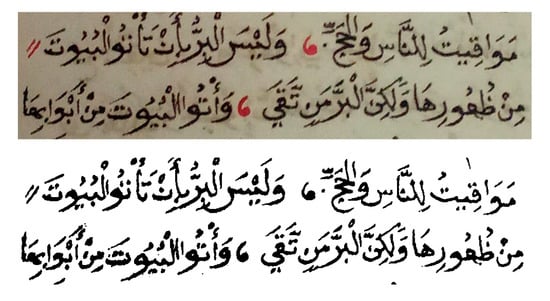 مَوَاقِيتُ لِلنَّاسِ وَالْحَجِّ وَلَيْسَ الْبِرُّ بِأَنْ تَأْتُوا الْبُيُوتَ
مِنْ ظُهُورِهَا وَلَكِنَّ الْبِرَّ مَنِ تَّقَي وَأْتُوا الْبُيُوتَ مِنْ أَبْوَابِهَا
مَوَاقِيتُ لِلنَّاسِ وَالْحَجِّ وَلَيْسَ الْبِرُّ بِأَنْ تَأْتُوا الْبُيُوتَ
مِنْ ظُهُورِهَا وَلَكِنَّ الْبِرَّ مَنِ تَّقَي وَأْتُوا الْبُيُوتَ مِنْ أَبْوَابِهَا